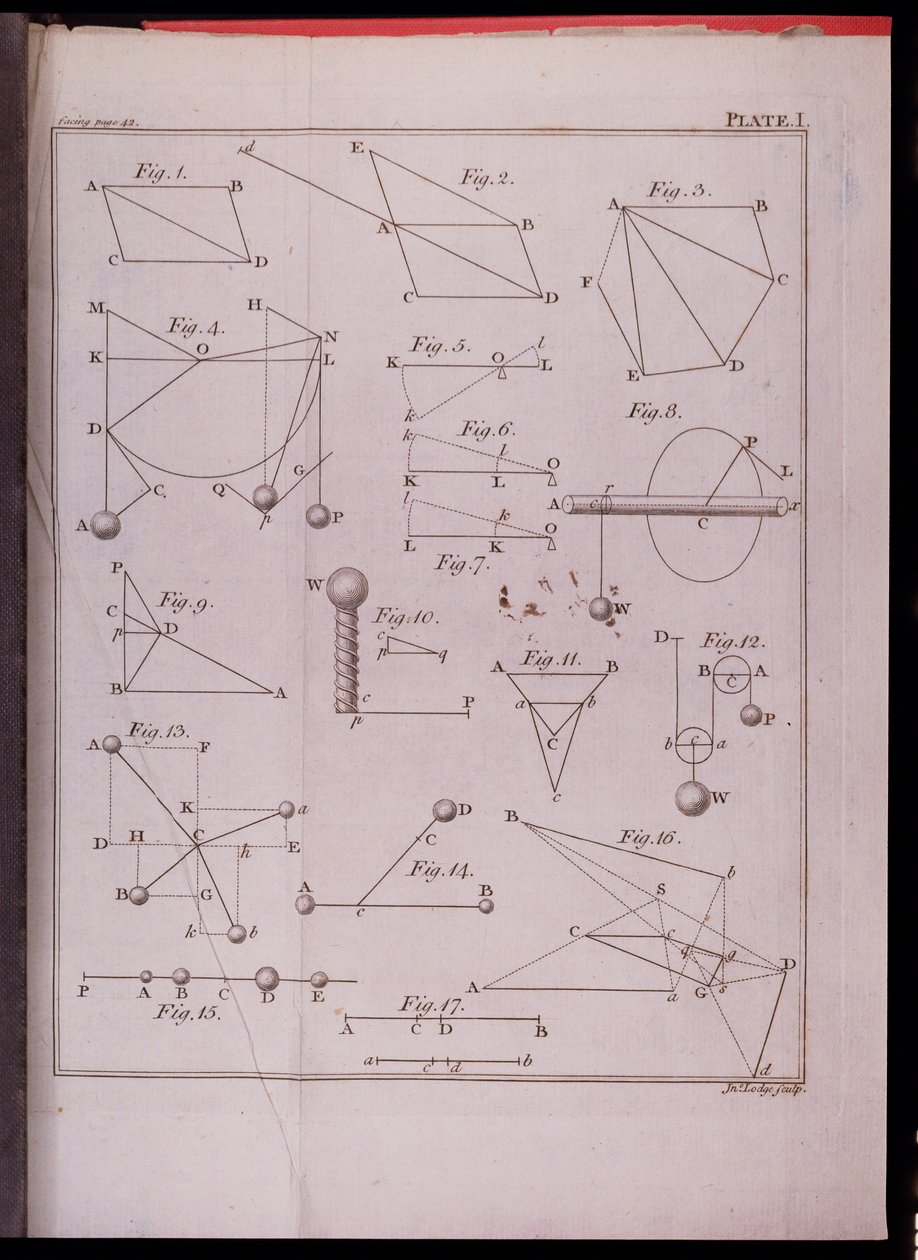 facing page 42.
PLATE.I.
Fig.1.
A
B
C
D
Fig.2.
d
E
A
B
C
D
Fig.3.
A
B
F
C
E
D
Fig.4.
M
H
N
K
O
L
D
G
Q
C
A
p
P
Fig.5.
K
O
l
L
k
Fig.6.
k
l
O
K
L
Fig.7.
l
k
O
L
K
Fig.8.
P
L
A
c
r
x
C
W
Fig.9.
P
C
p
D
B
A
Fig.10.
W
c
p
q
c
p
P
Fig.11.
A
B
a
b
C
c
Fig.12.
D
B
C
A
P
b
c
a
W
Fig.13.
A
F
K
a
D
H
C
h
E
B
G
k
b
Fig.14.
D
C
A
c
B
Fig.15.
P
A
B
C
D
E
Fig.16.
B
b
S
C
c
q
g
D
A
a
G
s
d
Fig.17.
A
C
D
B
a
c
d
b
Jno. Lodge sculp.